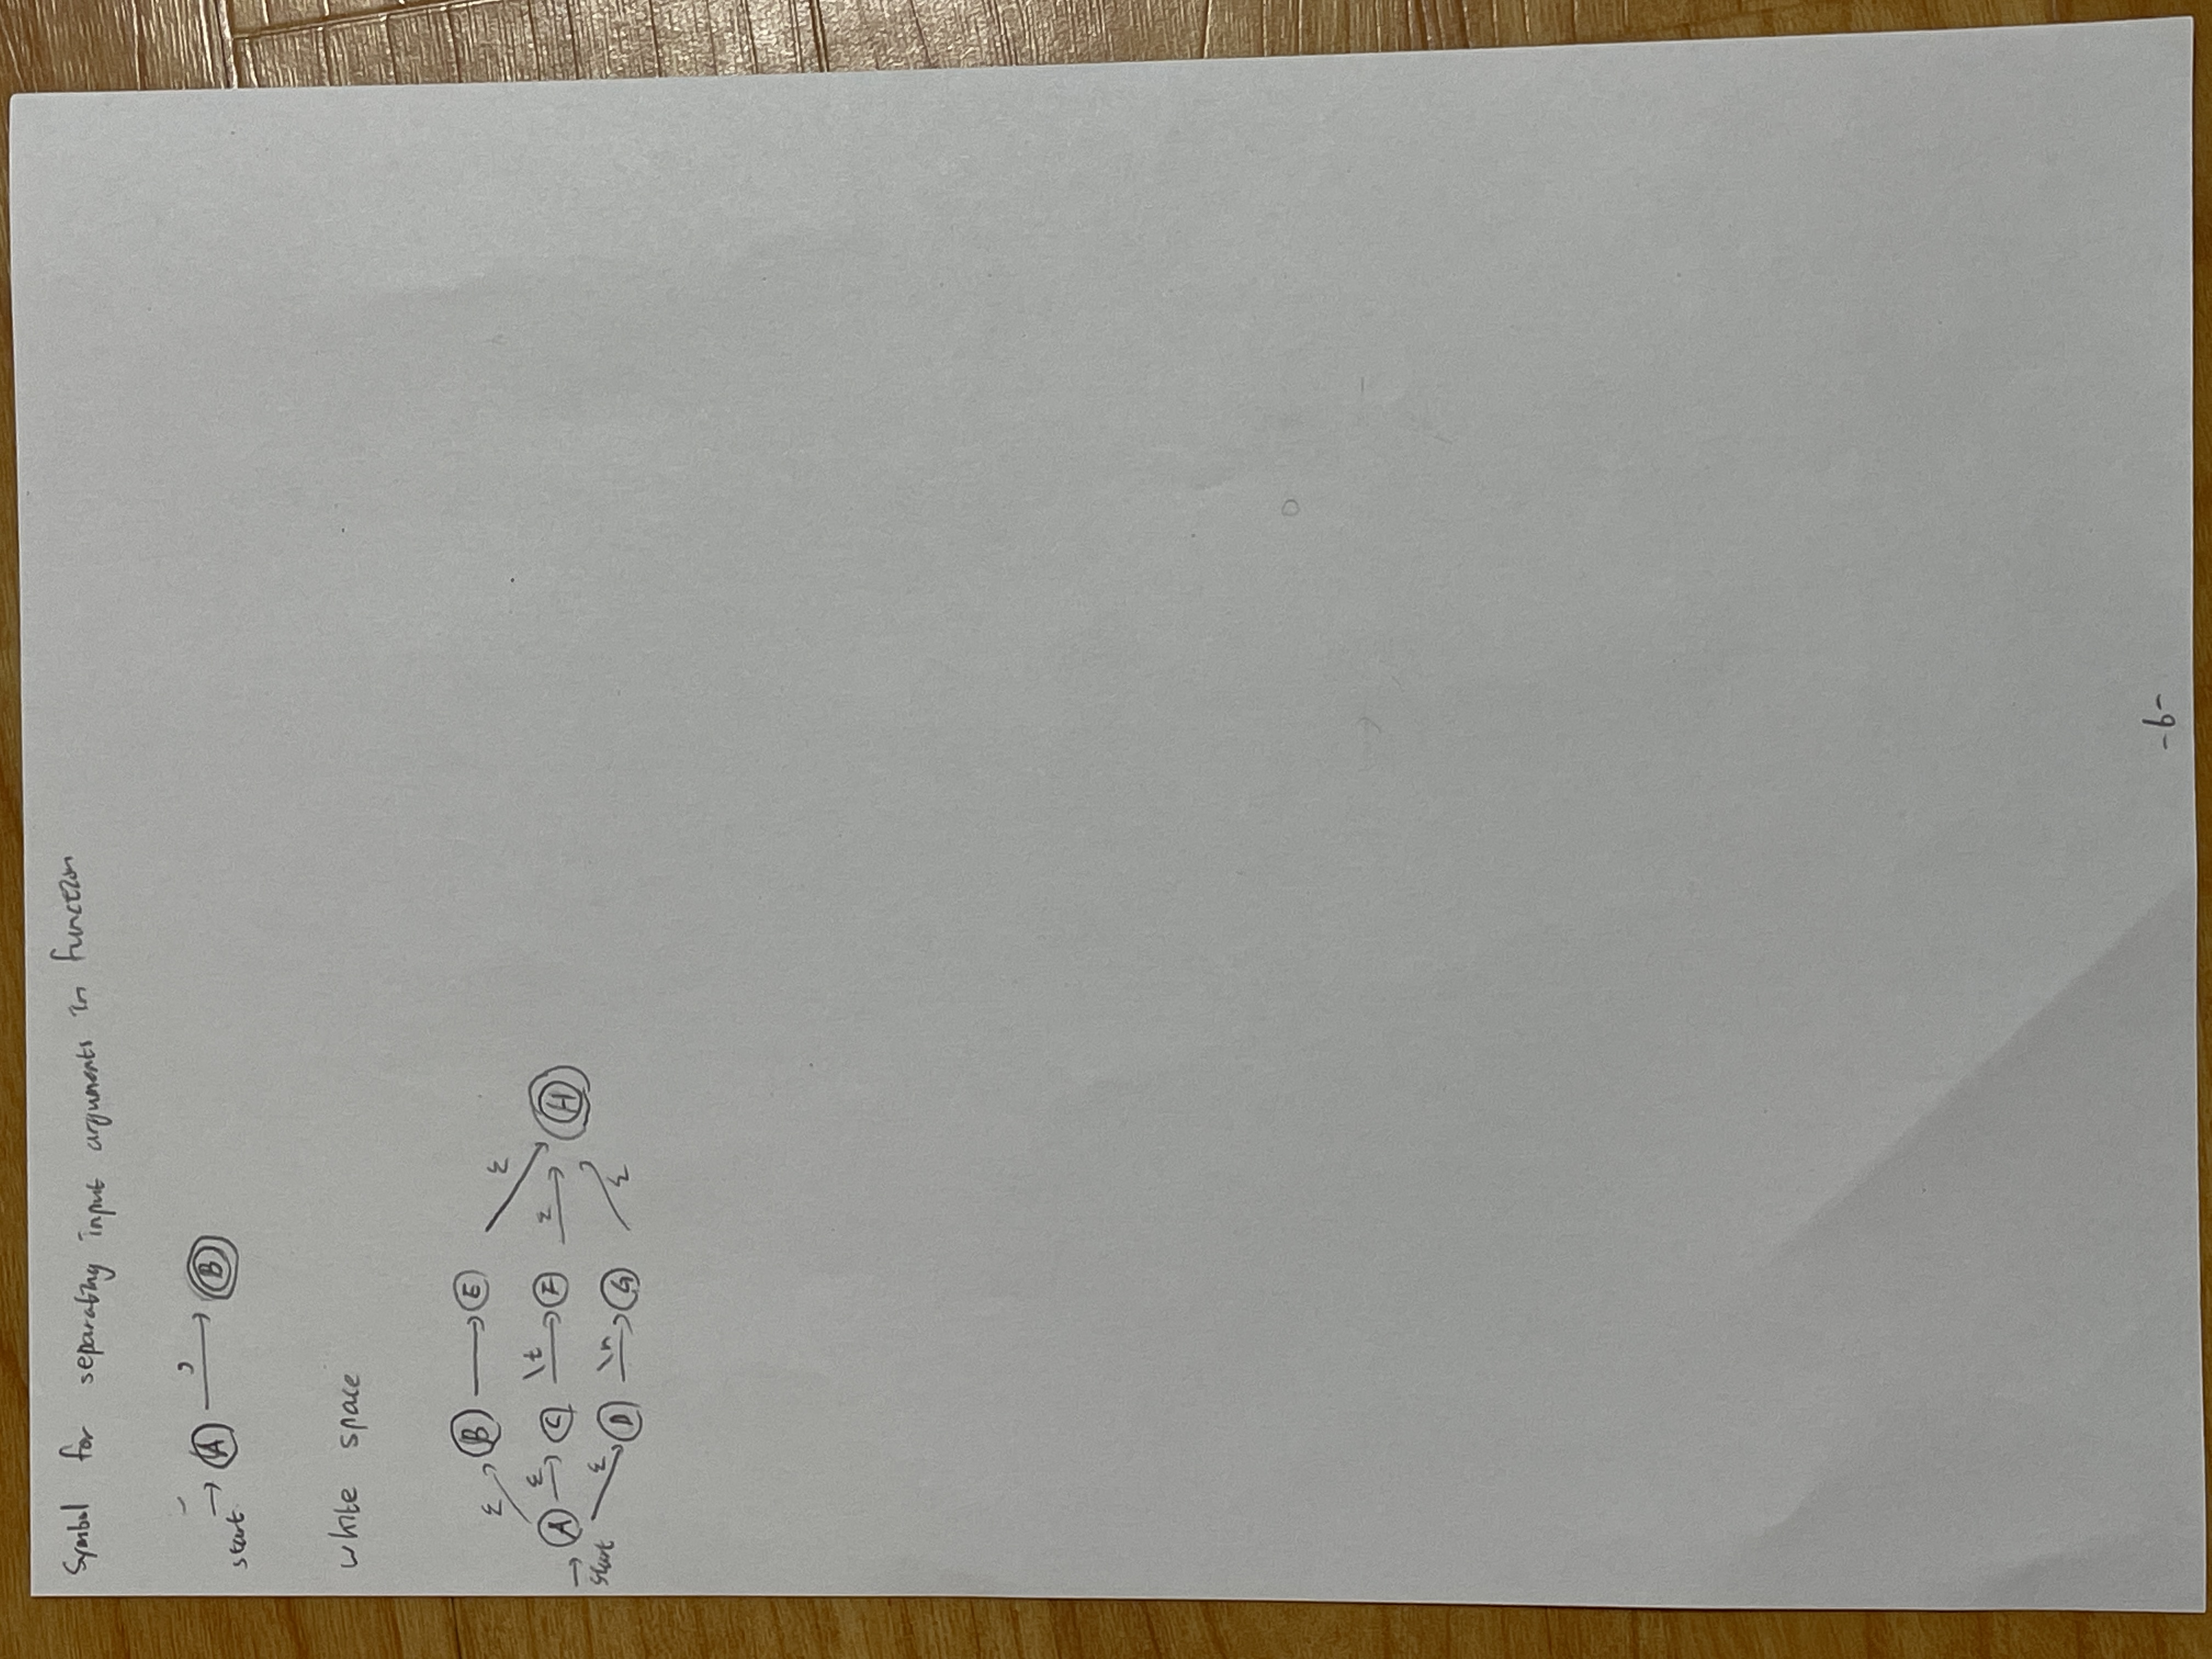 Symbol for separating input arguments in function
,
→ A → B
start
white space
B → E
ε ε
ε \t ε
→ A → C → F → H
start ε \n ε
D → G
-6-